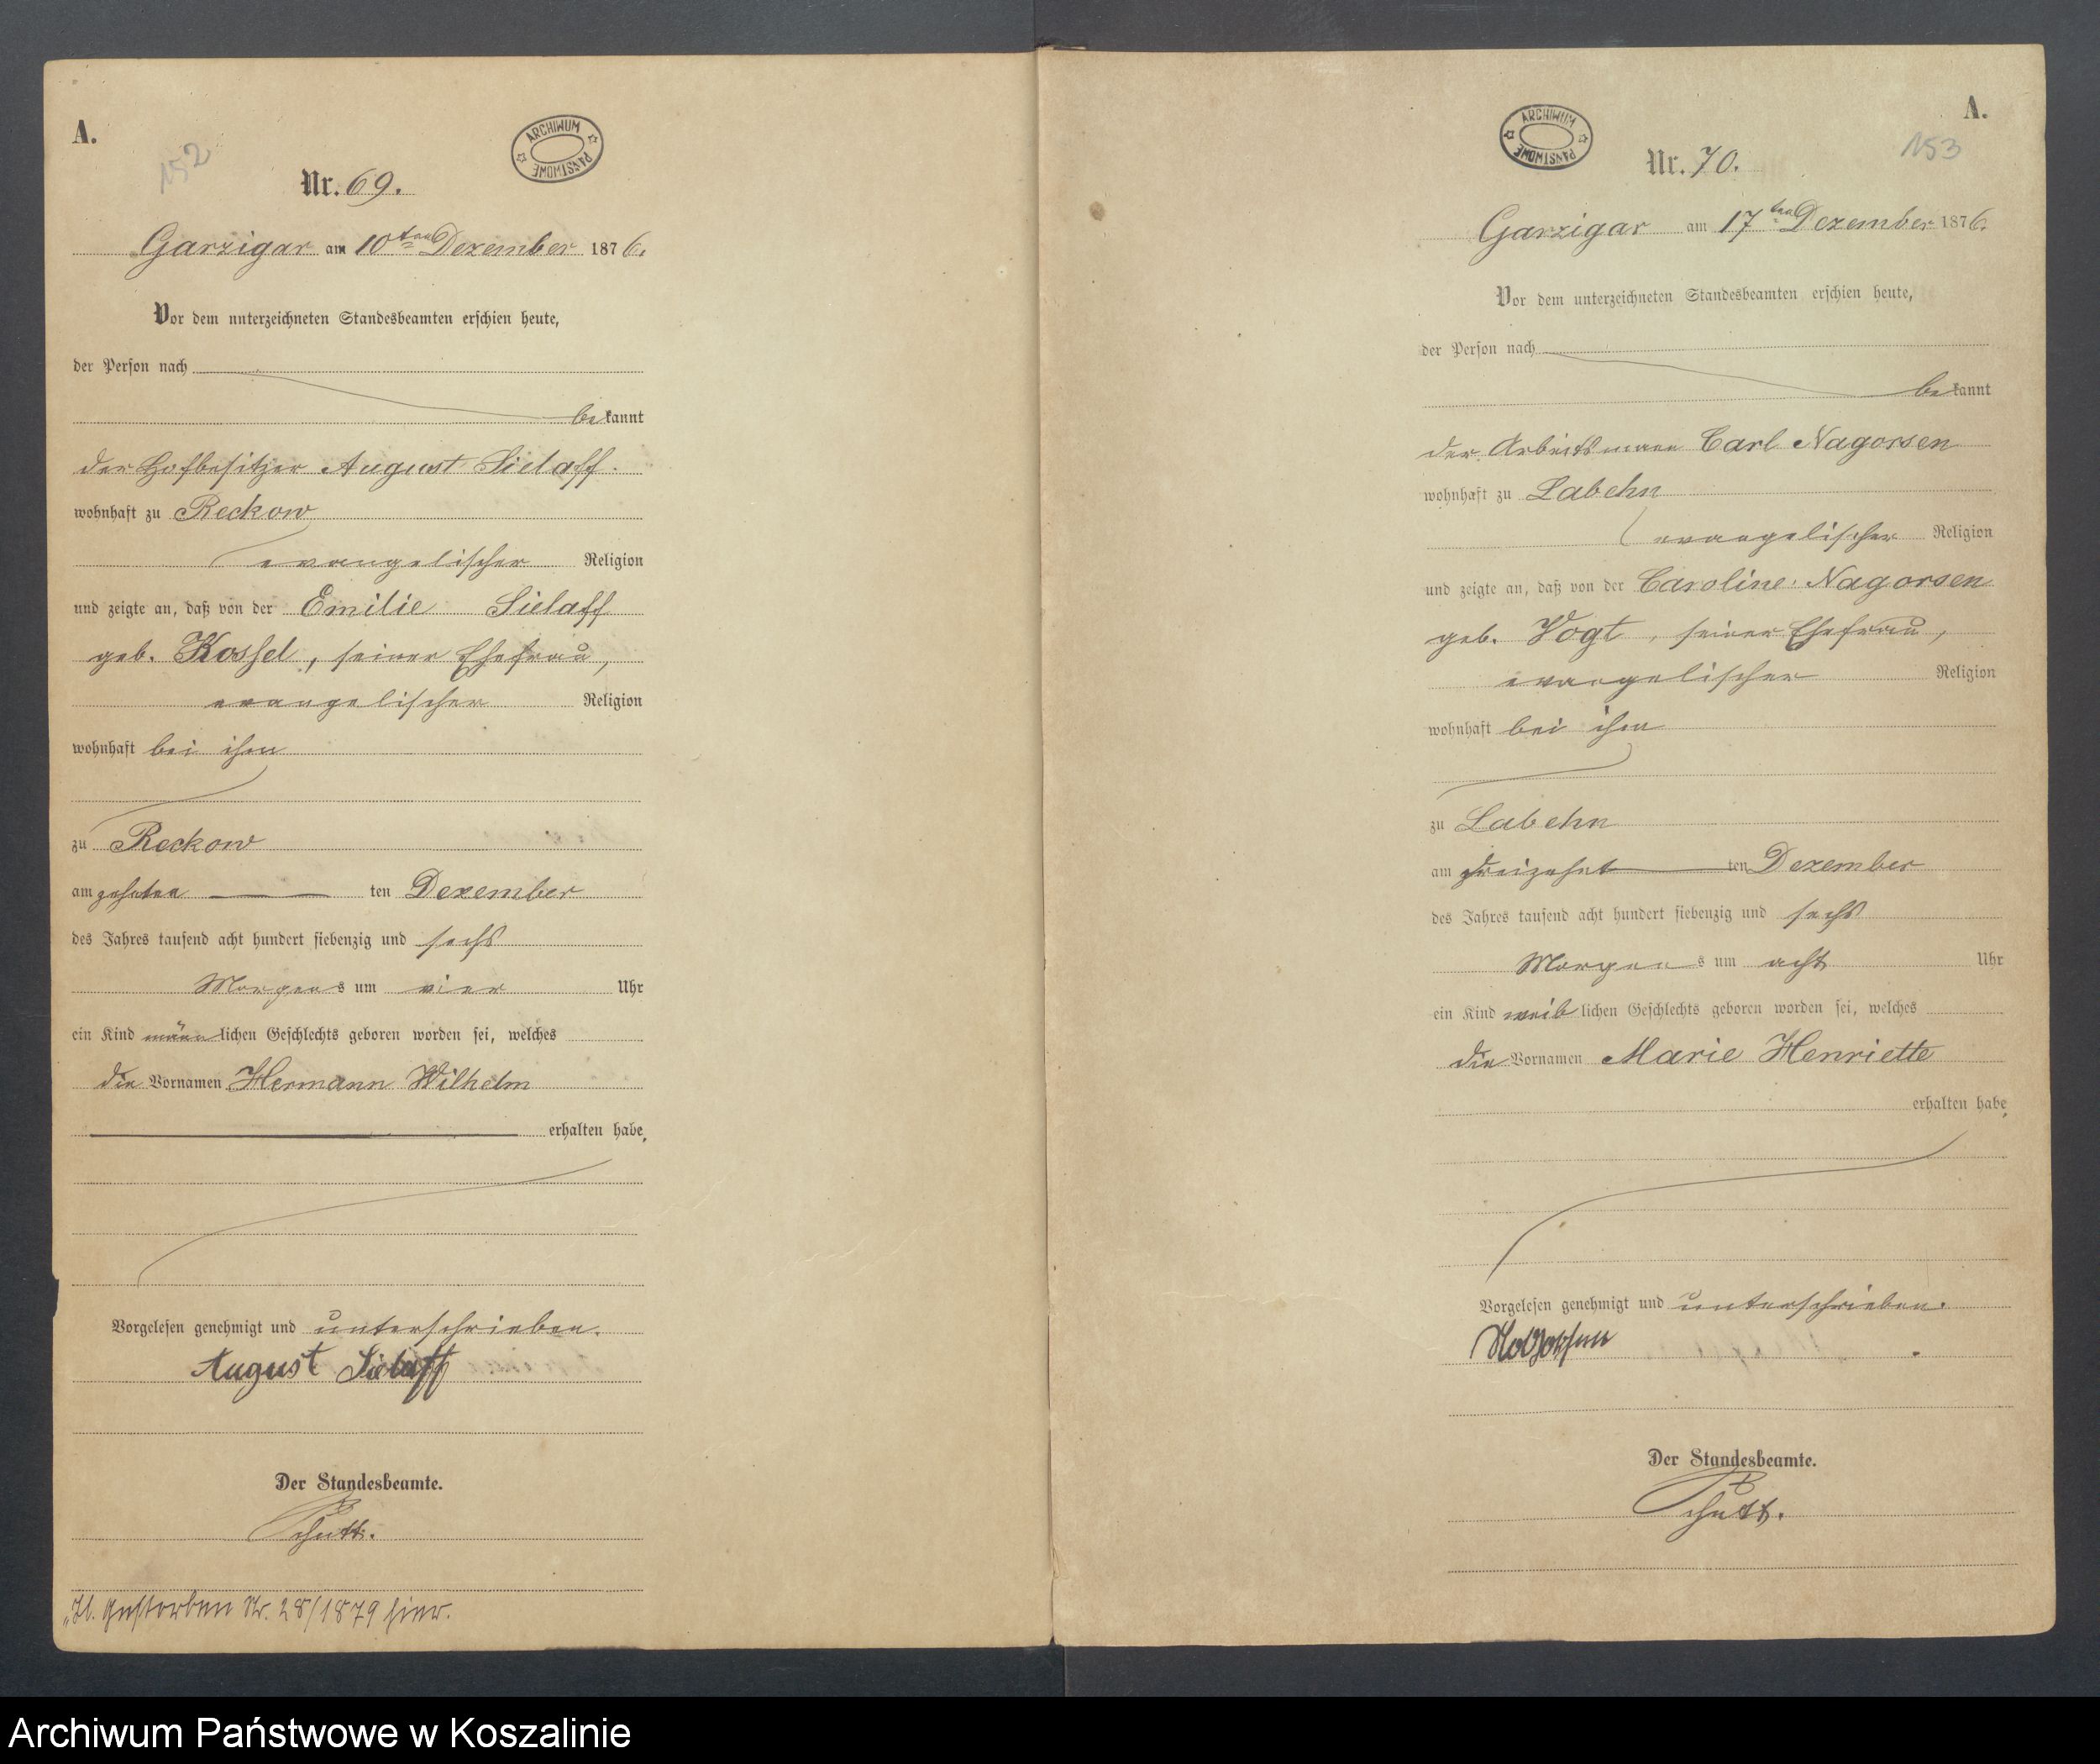 A.
152
ARCHIWUM PAŃSTWOWE
Nr. 69.
Garzigar am 10ten Dezember 1876.
Vor dem unterzeichneten Standesbeamten erschien heute,
der Person nach
bekannt
der Hofbesitzer August Sielaff
wohnhaft zu Reckow
evangelischer Religion
und zeigte an, daß von der Emilie Sielaff
geb. Kossel, seiner Ehefrau,
evangelischer Religion
wohnhaft bei ihm
zu Reckow
am zehnten ten Dezember
des Jahres tausend acht hundert siebenzig und sechs
Morgens um vier Uhr
ein Kind männlichen Geschlechts geboren worden sei, welches
die Vornamen Hermann Wilhelm
erhalten habe,
Vorgelesen genehmigt und unterschrieben.
August Sielaff
Der Standesbeamte.
Schutt.
Gestorben Nr. 28/1879 hier.
A.
153
ARCHIWUM PAŃSTWOWE
Nr. 70.
Garzigar am 17ten Dezember 1876.
Vor dem unterzeichneten Standesbeamten erschien heute,
der Person nach
bekannt
der Arbeitsmann Carl Nagorsen
wohnhaft zu Labehn
evangelischer Religion
und zeigte an, daß von der Caroline Nagorsen
geb. Vogt, seiner Ehefrau,
evangelischer Religion
wohnhaft bei ihm
zu Labehn
am dreizehnten Dezember
des Jahres tausend acht hundert siebenzig und sechs
Morgens um acht Uhr
ein Kind weiblichen Geschlechts geboren worden sei, welches
die Vornamen Marie Henriette
erhalten habe,
Vorgelesen genehmigt und unterschrieben.
Der Standesbeamte.
Schutt.
Archiwum Państwowe w Koszalinie